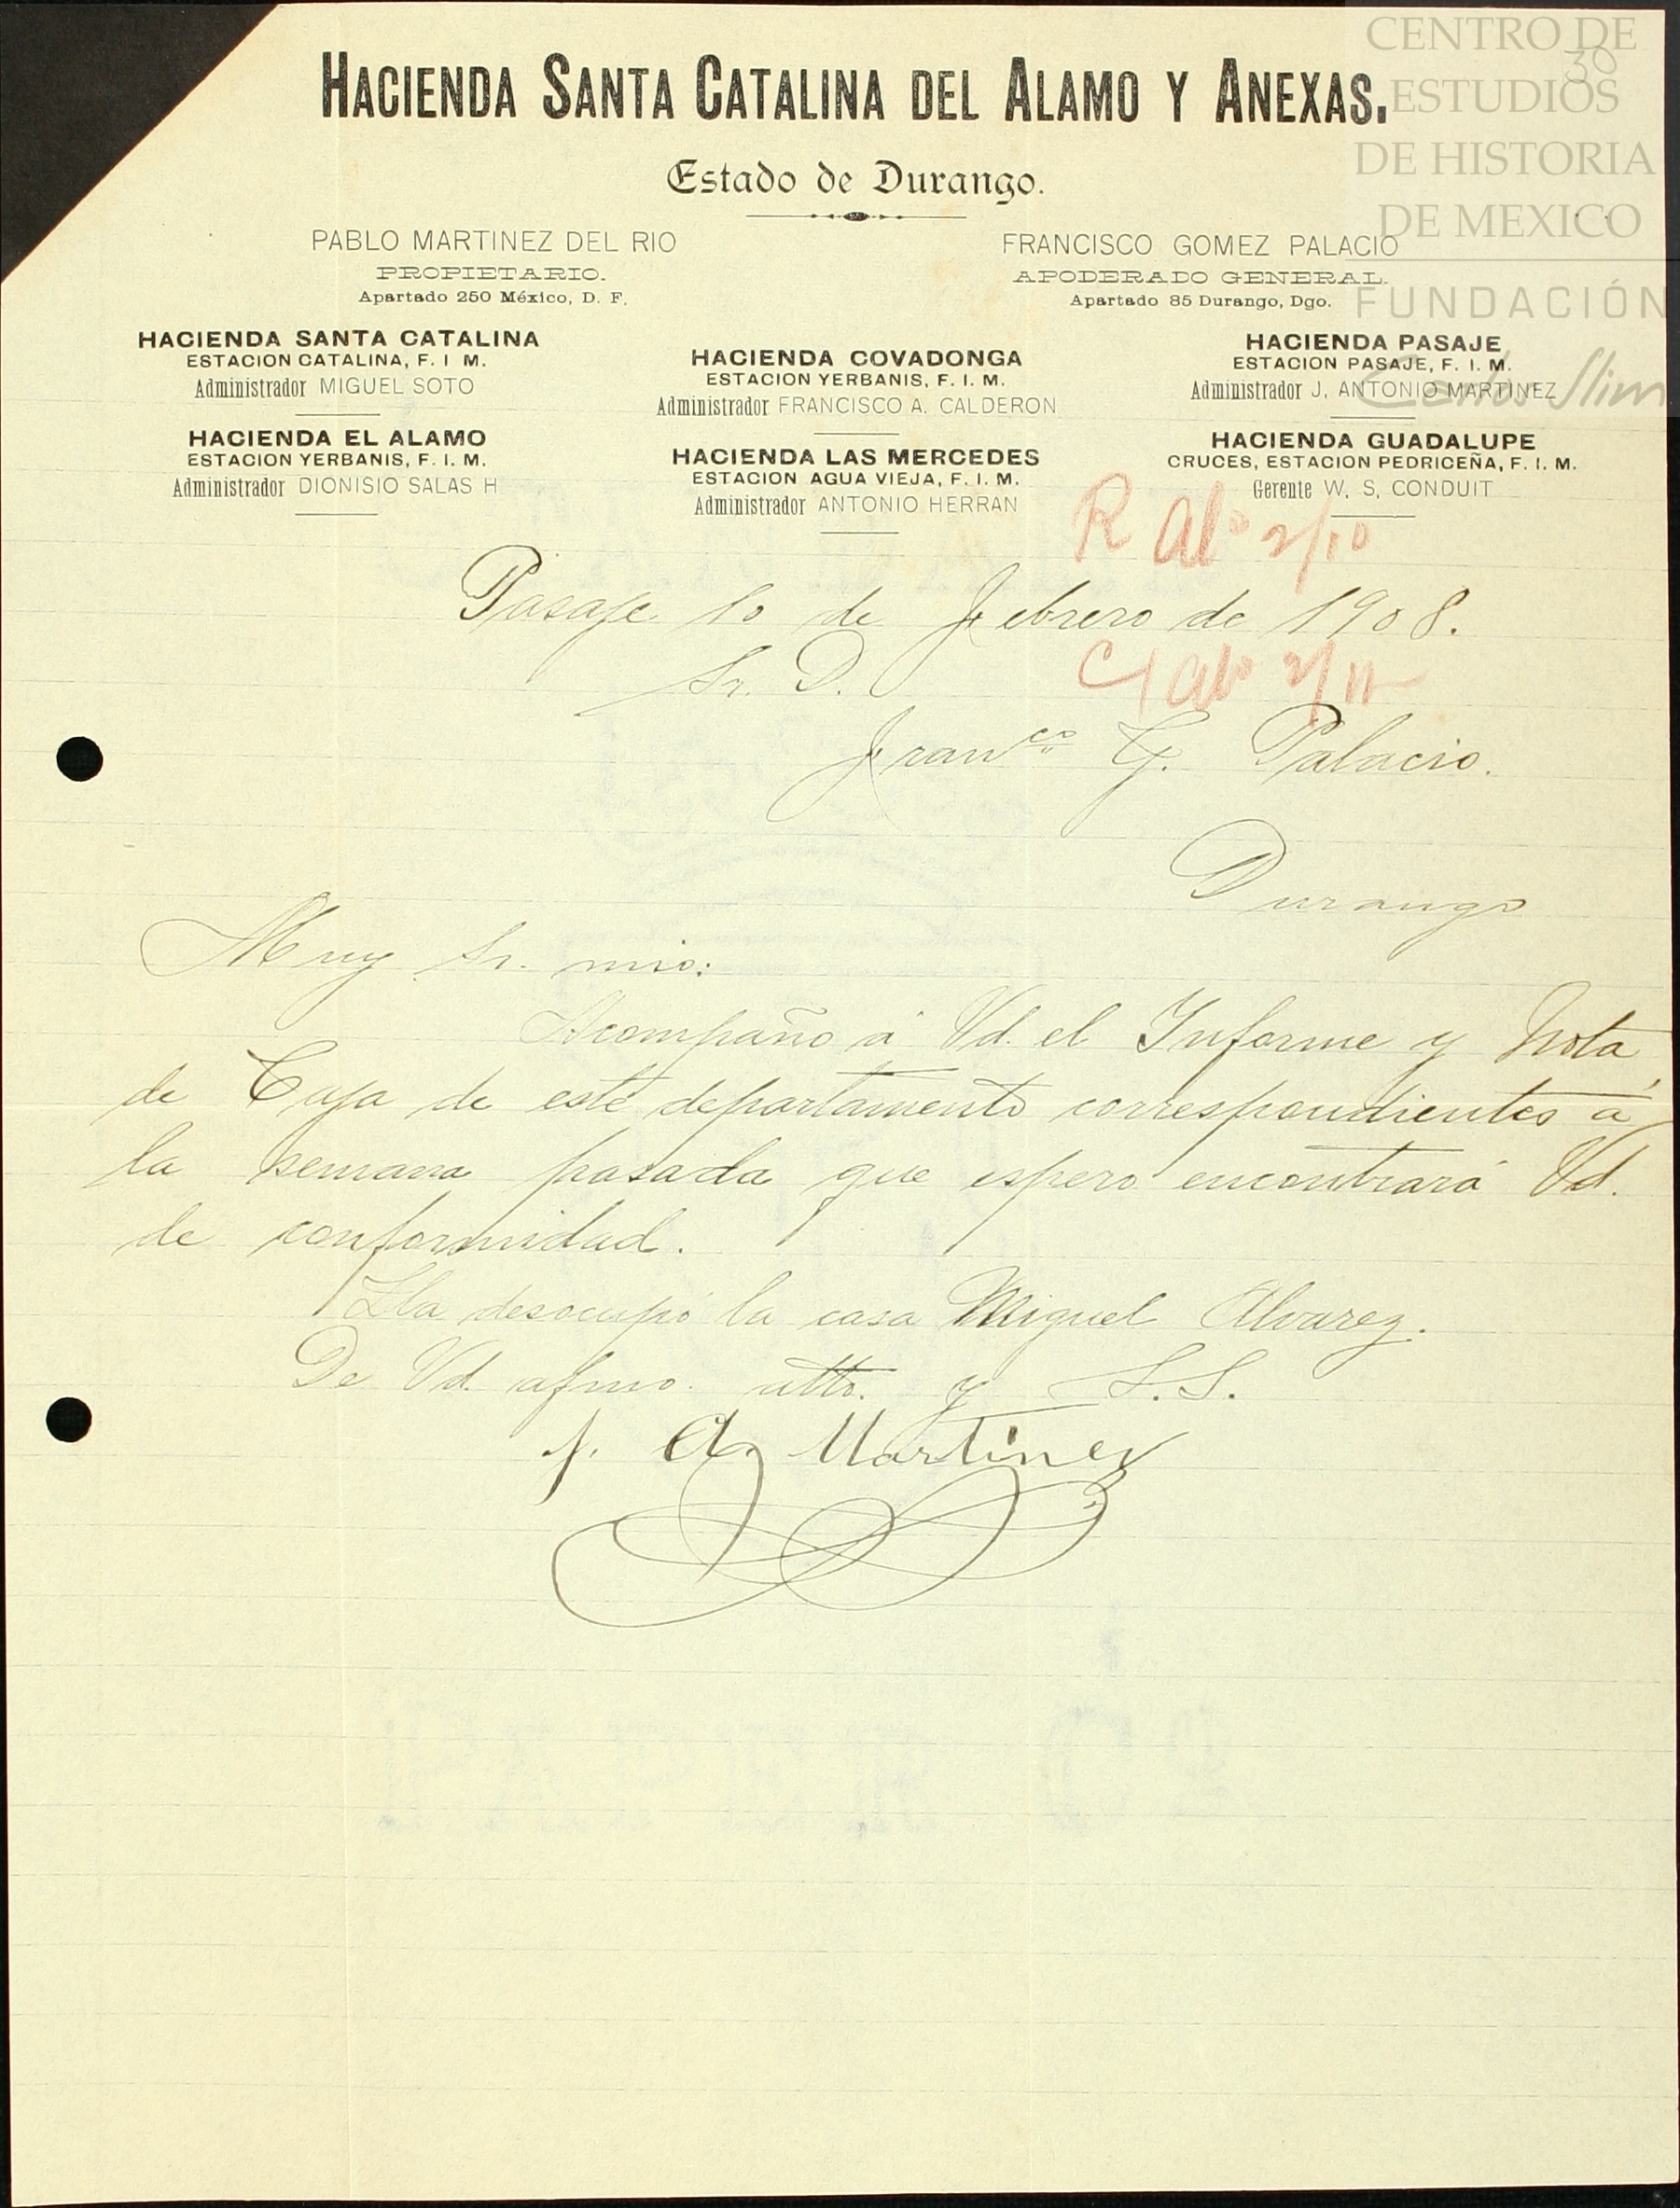 CENTRO DE
ESTUDIOS
DE HISTORIA
DE MEXICO
FUNDACIÓN
Carlos Slim
30
HACIENDA SANTA CATALINA DEL ALAMO Y ANEXAS.
Estado de Durango.
PABLO MARTINEZ DEL RIO
PROPIETARIO.
Apartado 250 México, D. F.
FRANCISCO GOMEZ PALACIO
APODERADO GENERAL.
Apartado 85 Durango, Dgo.
HACIENDA SANTA CATALINA
ESTACION CATALINA, F. I M.
Administrador MIGUEL SOTO
HACIENDA EL ALAMO
ESTACION YERBANIS, F. I. M.
Administrador DIONISIO SALAS H
HACIENDA COVADONGA
ESTACION YERBANIS, F. I. M.
Administrador FRANCISCO A. CALDERON
HACIENDA LAS MERCEDES
ESTACION AGUA VIEJA, F. I. M.
Administrador ANTONIO HERRAN
HACIENDA PASAJE
ESTACION PASAJE, F. I. M.
Administrador J. ANTONIO MARTINEZ
HACIENDA GUADALUPE
CRUCES, ESTACION PEDRICEÑA, F. I. M.
Gerente W. S. CONDUIT
R 2/10
Pasaje 10 de Febrero de 1908.
C/ 2/11
Sr. D.
Franco G. Palacio.
Durango
Muy Sr. mio:
Acompaño á Vd. el Informe y Nota
de Caja de este departamento correspondientes á
la semana pasada que espero encontrará Vd.
de conformidad.
Lla desocupó la casa Miguel Alvarez.
De Vd. afmo. atto. y S.S.
J. A. Martinez